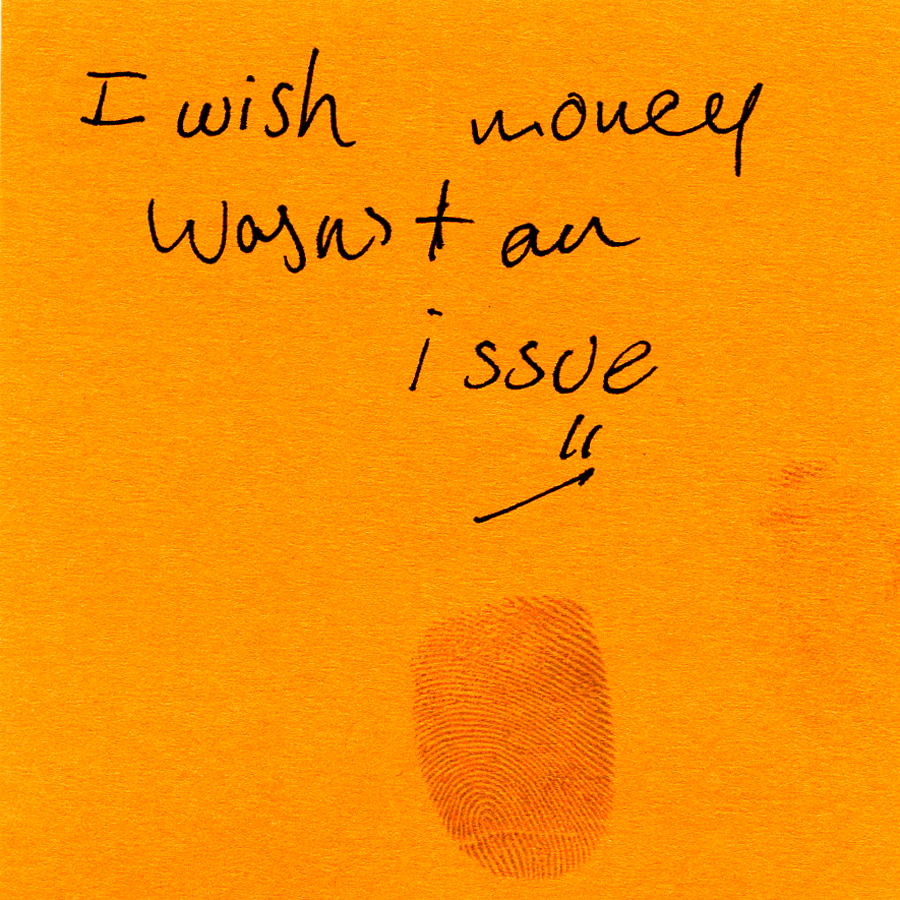 I wish money
wasn't an
issue